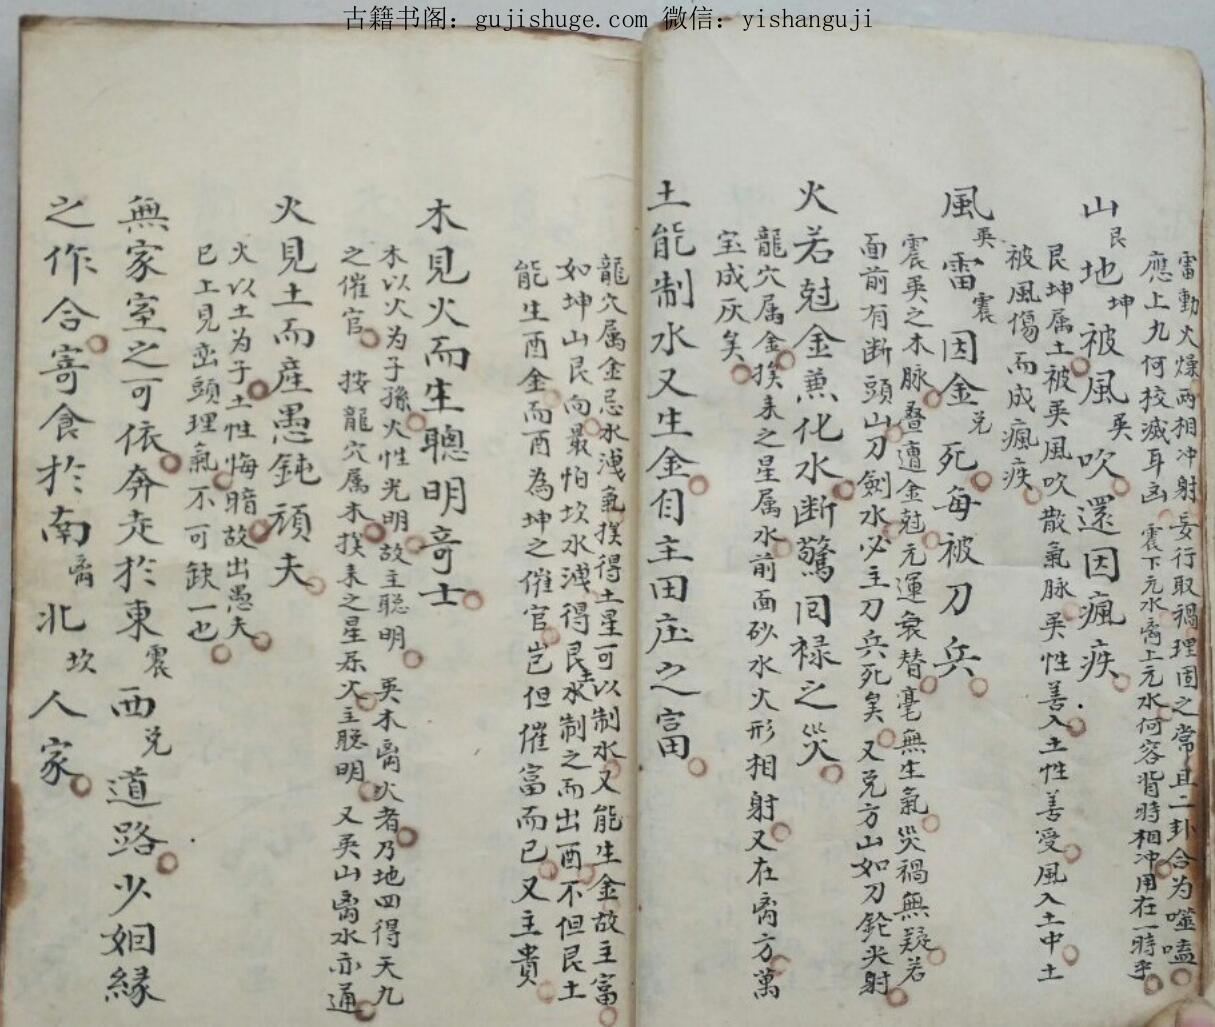 古籍书阁：gujishuge.com 微信：yishanguji
雷動火燥两相冲射妄行取禍理固之常且二卦合为噬嗑
應上九何校滅耳凶 震下元水离上元水何容背時相冲用在一時乎
山艮地坤被風巽吹還因瘋疾
艮坤属土被巽風吹散氣脉巽性善入土性善受風入土中土
被風傷而成瘋疾
風巽雷震因金兑死每被刀兵
震巽之木脉叠遭金尅元運衰替毫無生氣災禍無疑若
面前有断頭山刀劍水必主刀兵死矣又兑方山如刀鎗尖射
火若尅金兼化水断驚囘禄之災
龍穴属金揆来之星属水前面砂水火形相射又在离方萬
宝成灰矣
土能制水又生金自主田庄之富
龍穴属金忌水洩氣揆得土星可以制水又能生金故主富
如坤山艮向最怕坎水洩得艮土水制之而出酉不但艮土
能生酉金而酉為坤之催官岂但催富而已又主貴
木見火而生聰明竒士
木以火为子孫火性光明故主聪明 巽木离火者乃地四得天九
之催官 按龍穴属木揆来之星属火主聪明 又巽山离水亦通
火見土而產愚鈍頑夫
火以土为子土性悔暗故出愚夫
已上見峦頭理氣不可缺一也
無家室之可依奔走於東震西兑道路少姻緣
之作合寄食於南离北坎人家